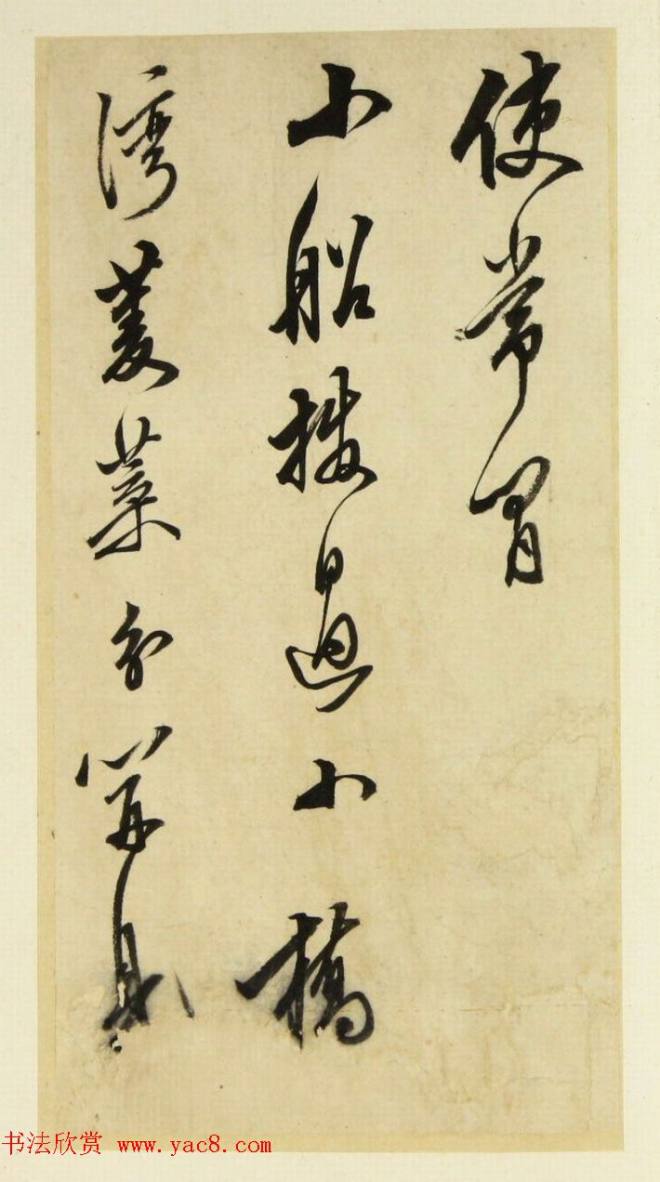 使常
小船過小橋
湾菱葉分開見
书法欣赏 www.yac8.com